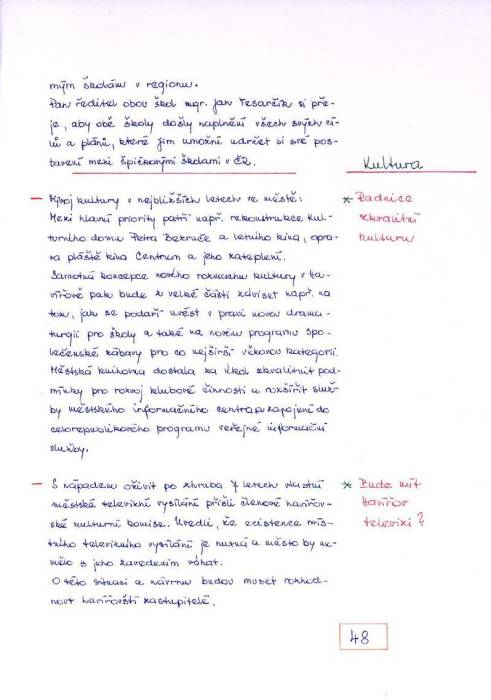 mým školám v regionu.
Pan ředitel obou škol mgr. Jan Tesarčík si pře-
je, aby obě školy došly naplnění všech svých cí-
lů a plánů, které jim umožní udržet si své pos-
tavení mezi špičkovými školami v ČR.
Kultura
Rozvoj kultury v nejbližších letech ve městě:
Mezi hlavní priority patří např. rekonstrukce kul-
turního domu Petra Bezruče a letního kina, opra-
va pláště kina Centrum a jeho zateplení.
Samotná koncepce nového rozmachu kultury v Ha-
vířově pak bude z velké části záviset např. na
tom, jak se podaří uvést v praxi novou drama-
turgii pro školy a také na novém programu spo-
lečenské zábavy pro co nejširší věkovou kategorii.
Městská knihovna dostala za úkol zkvalitnit pod-
mínky pro rozvoj klubové činnosti a rozšířit služ-
by městského informačního centra po zapojení do
celorepublikového programu veřejné informační
služby.
* Radnice
zkvalitní
kulturu
S nápadem oživit po zhruba 7 letech vlastní
městské televizní vysílání přišli členové havířov-
ské kulturní komise. Uvedli, že existence mís-
tního televizního vysílání je nutná a město by ne-
mělo s jeho zavedením váhat.
O této situaci a návrhu budou muset rozhod-
nout havířovští zastupitelé.
* Bude mít
Havířov
televizi?
48